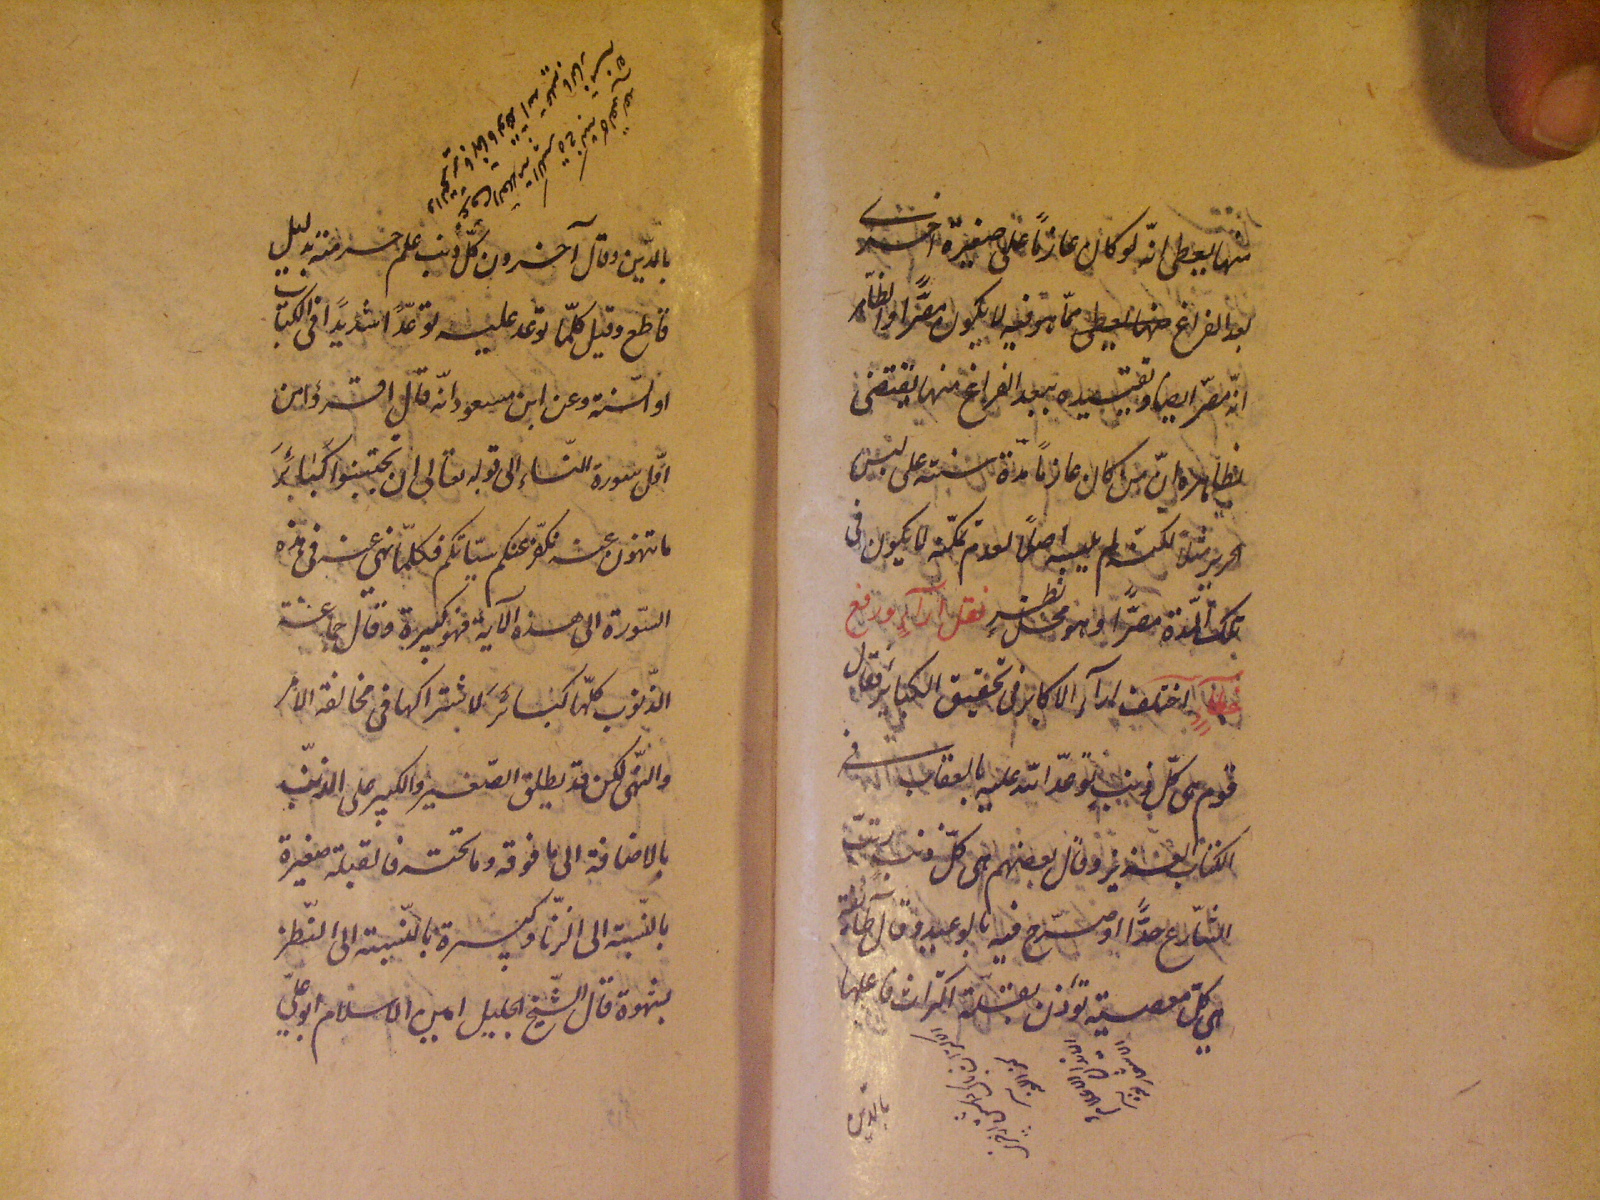 منها يعطى انّه لو كان عازمًا على صغيرة اخرى
بعد الفراغ ممّا هو فيه لا يكون مصرًّا والظاهر
انّه مصرّ ايضا وتقييده ببعد الفراغ منها يقتضى
بظاهره انّ من كان عازمًا مدّة سنة على لبس
الحرير مثلا لكنّه لم يلبسه اصلًا لعدم تمكّنه لا يكون فى
تلك المدّة مصرًّا وهو محلّ نظر نقل آرآء ورفع
اختلف ارآء الاكابر فى تحقيق الكبائر فقال
قوم هى كلّ ذنب توعّد الله عليه بالعقاب فى
الكتاب العزيز وقال بعضهم هى كلّ ذنب رتّب
الشّارع حدًّا او صرّح فيه بالوعيد وقال طآئفة
هى كلّ معصية تؤذن بقلّة اكتراث فاعلها
بالدّين
بالدّين وقال آخرون كلّ ذنب علم حرمته بدليل
قاطع وقيل كلّما توعّد عليه توعّدًا شديدًا فى الكتاب
او السّنة وعن ابن مسعود انّه قال اقرؤا من
اوّل سورة النّساء الى قوله تعالى ان تجتنبوا كبائر
ما تنهون عنه نكفّر عنكم سيّاتكم فكلّما نهى عنه فى هذه
السّورة الى هذه الآية فهو كبيرة وقال جماعة
الذّنوب كلّها كبائر لاشتراكها فى مخالفة الامر
والنّهى لكن قد يطلق الصّغير والكبير على الذنب
بالاضافة الى ما فوقه وما تحته فالقبلة صغيرة
بالنّسبة الى الزّنا وكبيرة بالنّسبة الى النّظر
بشهوة قال الشّيخ الجليل امين الاسلام ابو علىّ